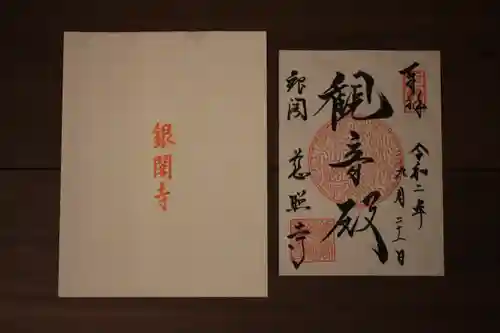 銀閣寺
奉拝
令和二年
九月二十一日
観音殿
銀閣
慈照寺